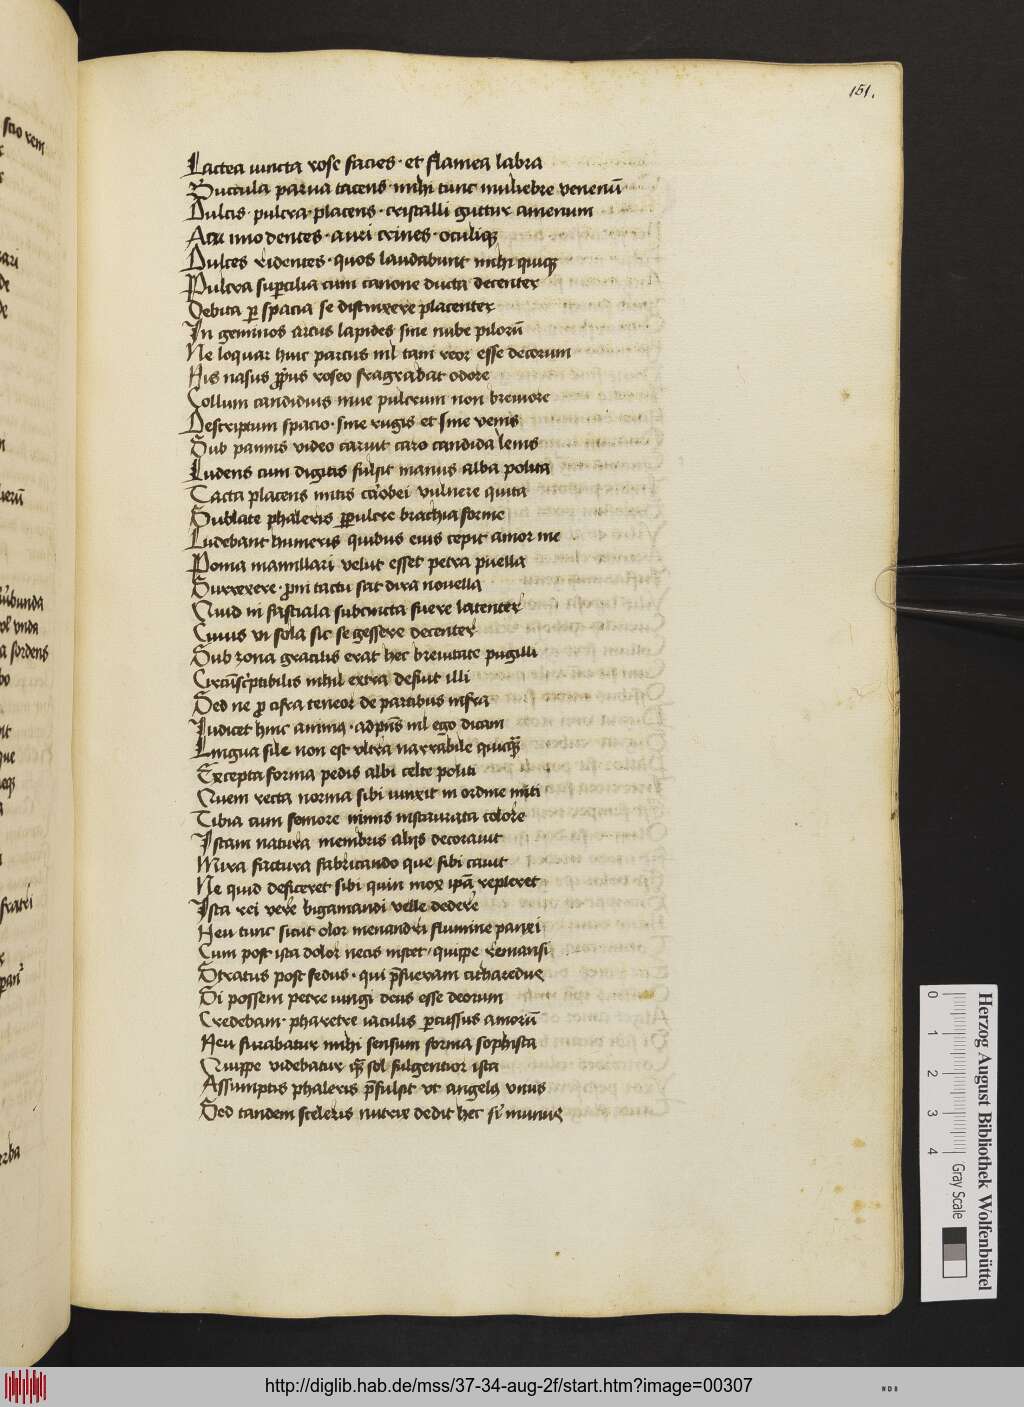 151.
Lactea iuncta rose facies · et flamea labra
Buccula parua tacens · mihi tunc muliebre venenū
Dulcis · pulcra · placens · cristalli guttur amenum
Acu mo dentes · auri crines · oculiq;
Dulces ridentes · quos laudabunt mihi quiq;
Pulcra supercilia cum canone ducta decenter
Debita per spacia se distinxere placenter
In geminos arcus lapides sine nube pilorū
Ne loquar hinc parcus nil tam reor esse decorum
His nasus roseo fragrabat odore
Collum candidius niue pulcrum non breuiore
Descriptum spacio · sine rugis et sine venis
Sub pannis video caruit caro candida lenis
Ludens cum digitis fulsit manus alba polita
Tacta placens mitis vulnere quita
Sublate phaleris perpulcre brachia forme
Ludebant humeris quibus eius cepit amor me
Poma mamillari velut esset petra puella
Surrexere · tactu sat dira nouella
Quid in fasciala subcincta fuere latenter
Cuius vi sola sic se gessere decenter
Sub zona gracilis erat hec breuitate pugilli
nihil extra defuit illi
Sed ne pro cifra teneor de partibus infra
Iudicet hinc anima · nil ego dicam
Lingua sile non est vltra narrabile quicq̄
Excepta forma pedis albi celte politi
Quem recta norma sibi iunxit in ordine miti
Tibia cum femore nimis instaurata colore
Istam natura membris alijs decorauit
Mira factura fabricando que sibi cauit
Ne quid deficeret sibi quin mox ipā repleret
Ista rei vere bigamandi velle dedere
Heu tunc sicut olor menandri flumine panxi
Cum post ista dolor necis instet / quippe remansi
Stratus post fedus · qui citharedus
Si possem petre iungi deus esse deorum
Credebam · pharetre iaculis percussus amorū
Heu furabatur mihi sensum forma sophista
Quippe videbatur q̄ sol fulgentior ista
Assumptis phaleris p̄fulsit vt angelus vnus
Sed tandem sceleris nutrix dedit hec munus
Herzog August Bibliothek Wolfenbüttel
0 1 2 3 4
Gray Scale
http://diglib.hab.de/mss/37-34-aug-2f/start.htm?image=00307